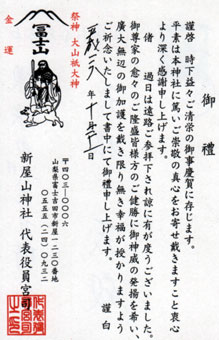 御禮
謹啓　時下益々ご清栄の御事慶賀に存じます。
平素は本神社に篤いご崇敬の真心をお寄せ戴きますこと衷心
より深く感謝申し上げます。
偖　過日は遠路ご参拝下され誠に有が度うございました。
御尊家の愈々のご隆盛皆様方のご健勝に御神威の発揚を希い、
廣大無辺の御加護を戴き限り無き幸福が授かりますよう
ご祈念いたしまして書中にて御禮申し上げます。
謹白
十月
〒四〇三―〇〇〇六
山梨県富士吉田市新屋一二三〇番地
〇五五五(二四)〇九三二
新屋山神社　代表役員宮司
祭神　大山祇大神
金運
冨士山